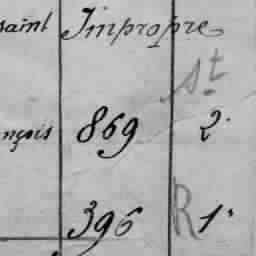 saint Impropre
St
nçois 869 2.
396 R 1.